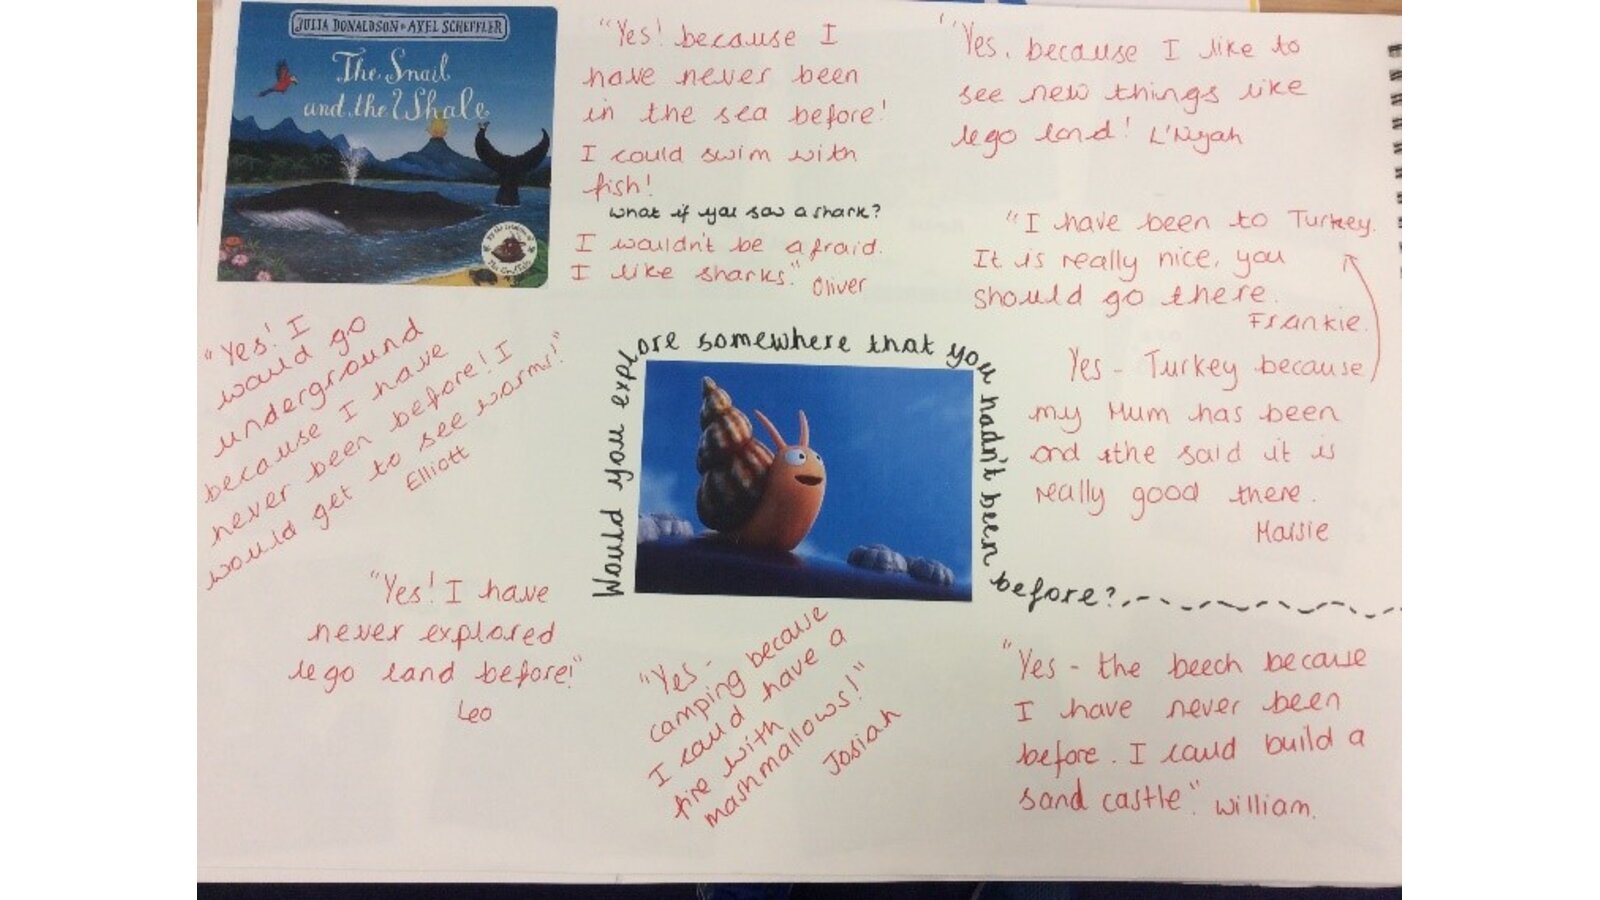 JULIA DONALDSON • AXEL SCHEFFLER
The Snail
and the Whale
"Yes! because I
have never been
in the sea before!
I could swim with
fish!
what if you saw a shark?
I wouldn't be afraid.
I like sharks." Oliver
"Yes, because I like to
see new things like
lego land! L'Niyah
"I have been to Turkey.
It is really nice, you
should go there.
Frankie.
Yes - Turkey because
my Mum has been
and she said it is
really good there.
Maisie
"Yes! I
would go
underground
because I have
never been before! I
would get to see worms!"
Elliott
Would you explore somewhere that you hadn't been before?
"Yes! I have
never explored
lego land before!"
Leo
"Yes -
camping because
I could have a
fire with
mashmallows!"
Josiah
"Yes - the beech because
I have never been
before. I could build a
sand castle." William.